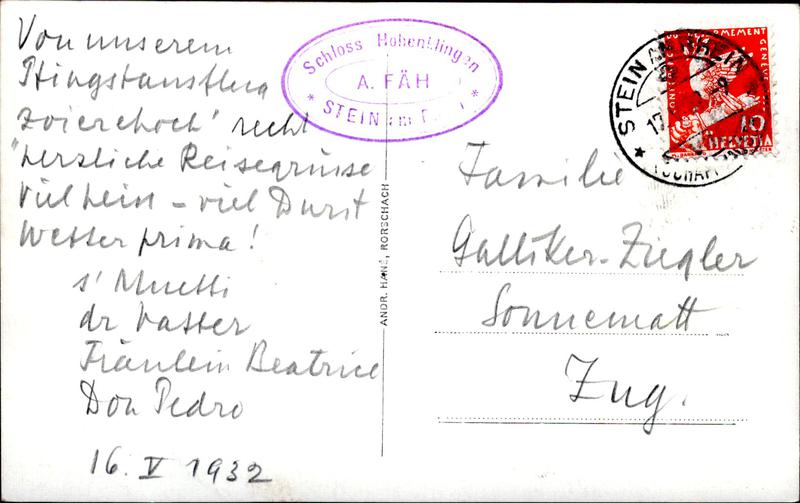 Von unserem
Pfingstausflug
zvierehoch' recht
herzliche Reisegrüsse
Viel heiss – viel Durst
Wetter prima!
s' Muetti
dr Vatter
Fräulein Beatrice
Don Pedro
16. V 1932
Schloss Hohenklingen
A. FÄH
* STEIN am *
ANDR. HANE, RORSCHACH
STEIN AM RHEIN
10
HELVETIA
Familie
Galliker-Ziegler
Sonnematt
Zug.